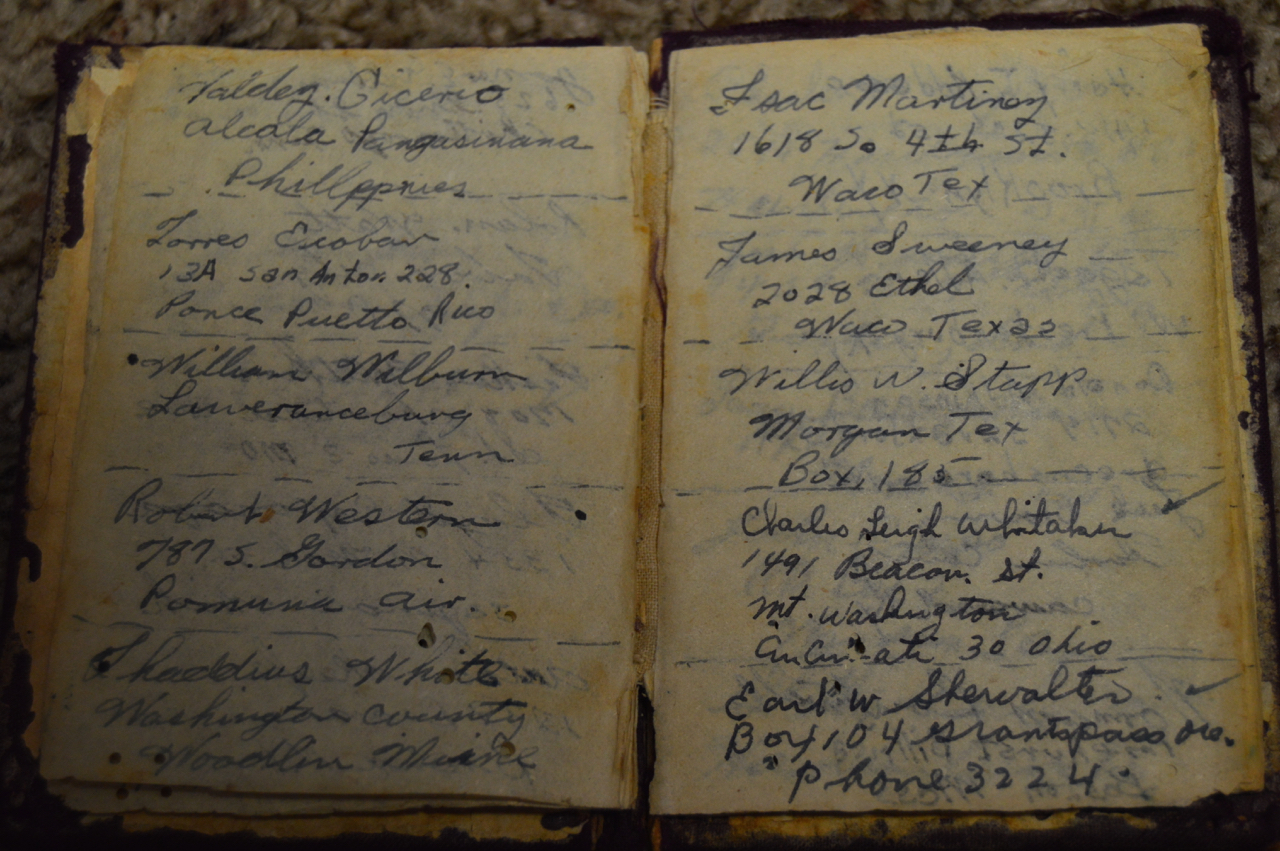 Valdez. Cicerio
Alcala Pangasinana
Phillppines
Torres Escobar
13A San Anton 228.
Ponce Puetto Rico
William Wilburn
Laweranceburg
Tenn
Robert Western
787 S. Gordon
Pomunia
Thaddius White
Washington County
Woodlin Maine
Isac Martinez
1618 So 4th St.
Waco Tex
James Sweeney
2028 Ethel
Waco Texas
Willis W. Stapp
Morgan Tex
Box, 185
Charles Leigh Whitaker
1491 Beacon. St.
Mt. Washington
Cincinati 30 Ohio
Earl W Shewalter
Box 104 Grantspass Ore.
" Phone 3224.